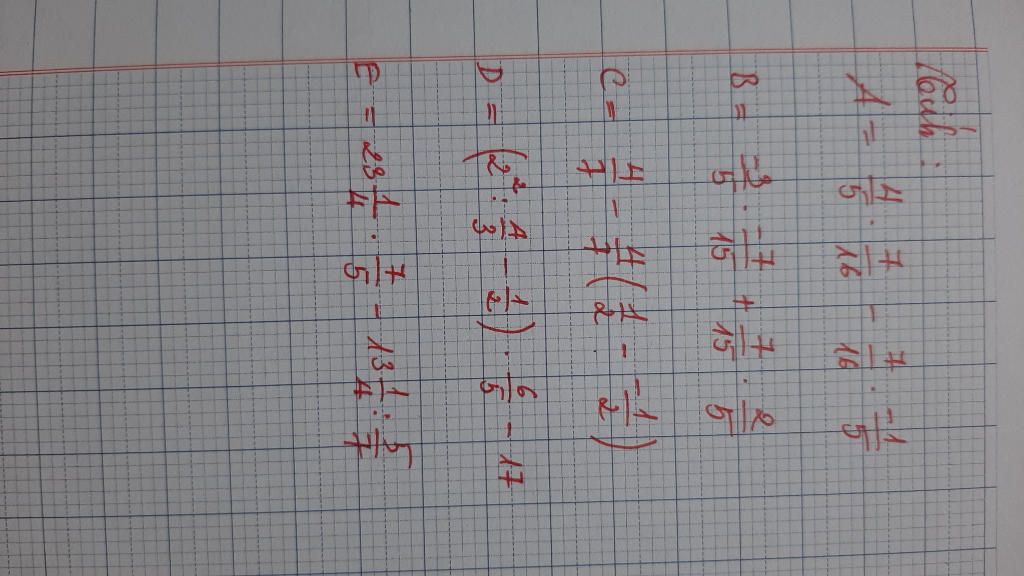 Tính :
A = 4/5 . 7/16 - 7/16 . -1/5
B = -3/5 . -7/15 + 7/15 . 2/5
C = 4/7 - 4/7 (1/2 - -1/2)
D = (2² : 4/3 - 1/2) . 6/5 - 17
E = 23 1/4 . 7/5 - 13 1/4 : 5/7